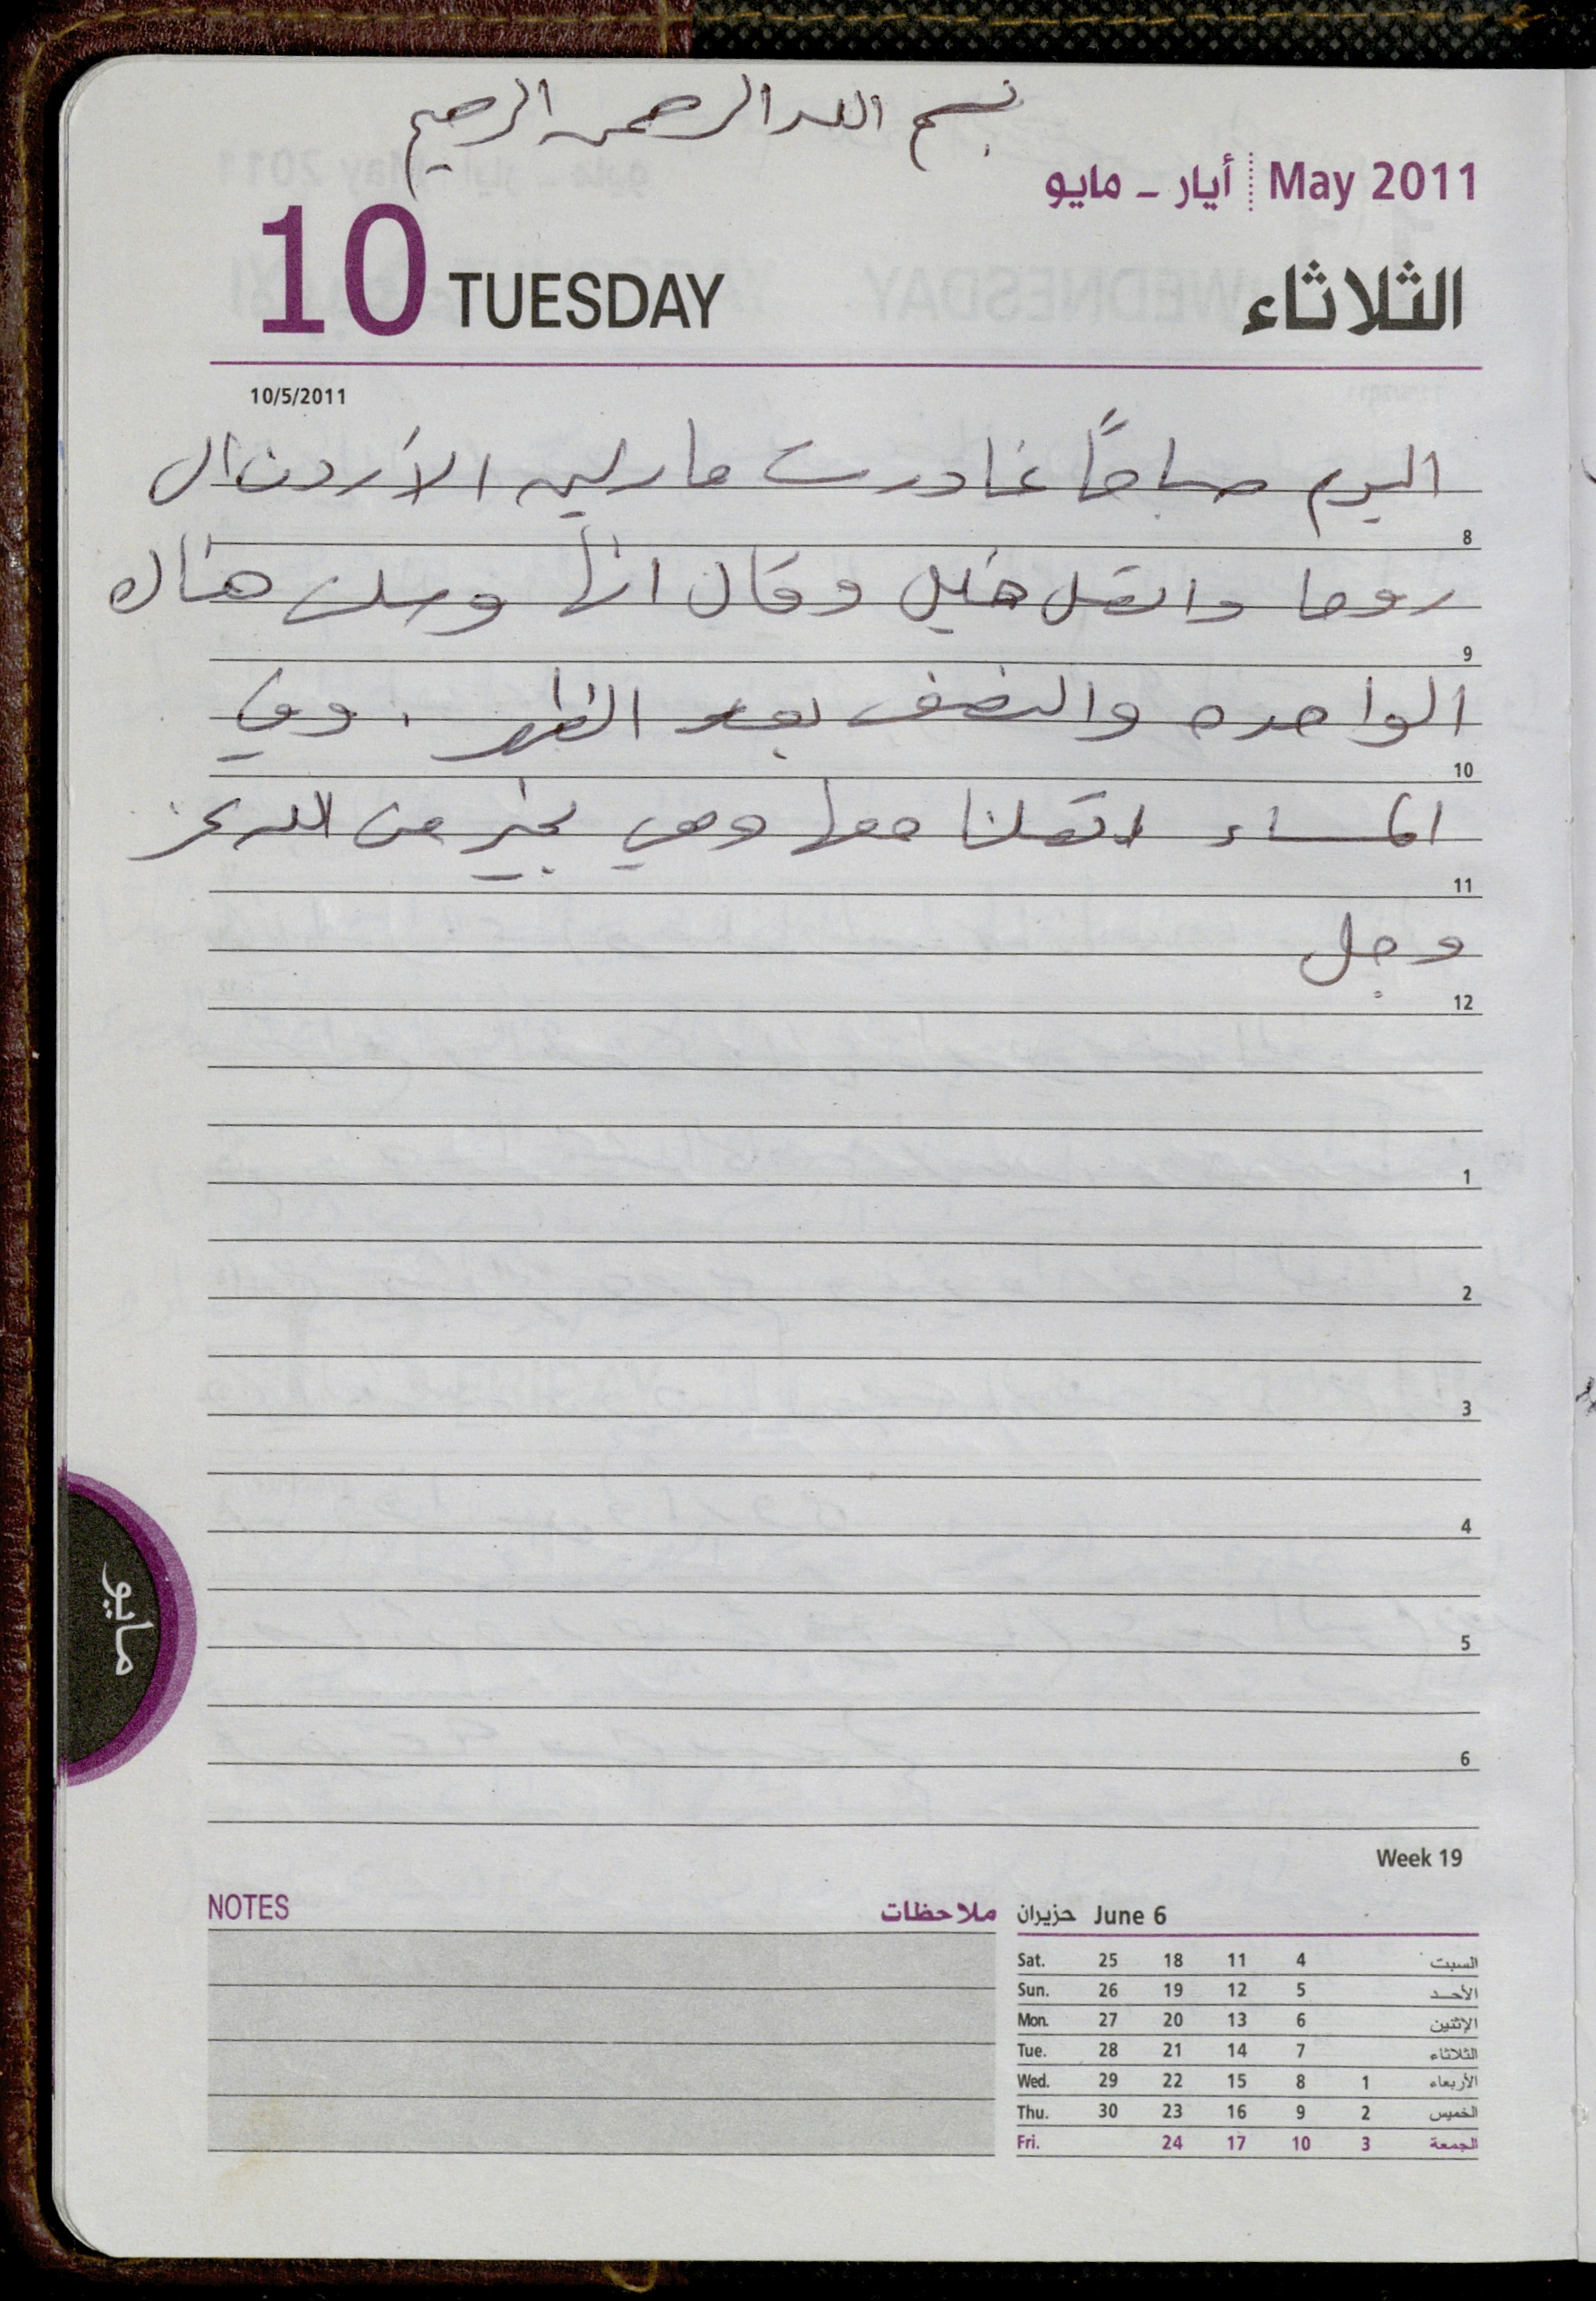 بسم الله الرحمن الرحيم
أيار - مايو May 2011
10 TUESDAY الثلاثاء
10/5/2011
اليوم صباحاً غادرت مارلين الأردن الى
8
روما واتصل خليل وقال انها وصلت هناك
9
الواحده والنصف بعد الظهر . وفي
10
المساء اتصلنا معها وهي بخير من الله عز
11
وجل
12
1
2
3
4
مايو
5
6
Week 19
NOTES ملاحظات
حزيران June 6
Sat. 25 18 11 4 السبت
Sun. 26 19 12 5 الأحد
Mon. 27 20 13 6 الإثنين
Tue. 28 21 14 7 الثلاثاء
Wed. 29 22 15 8 1 الأربعاء
Thu. 30 23 16 9 2 الخميس
Fri. 24 17 10 3 الجمعة